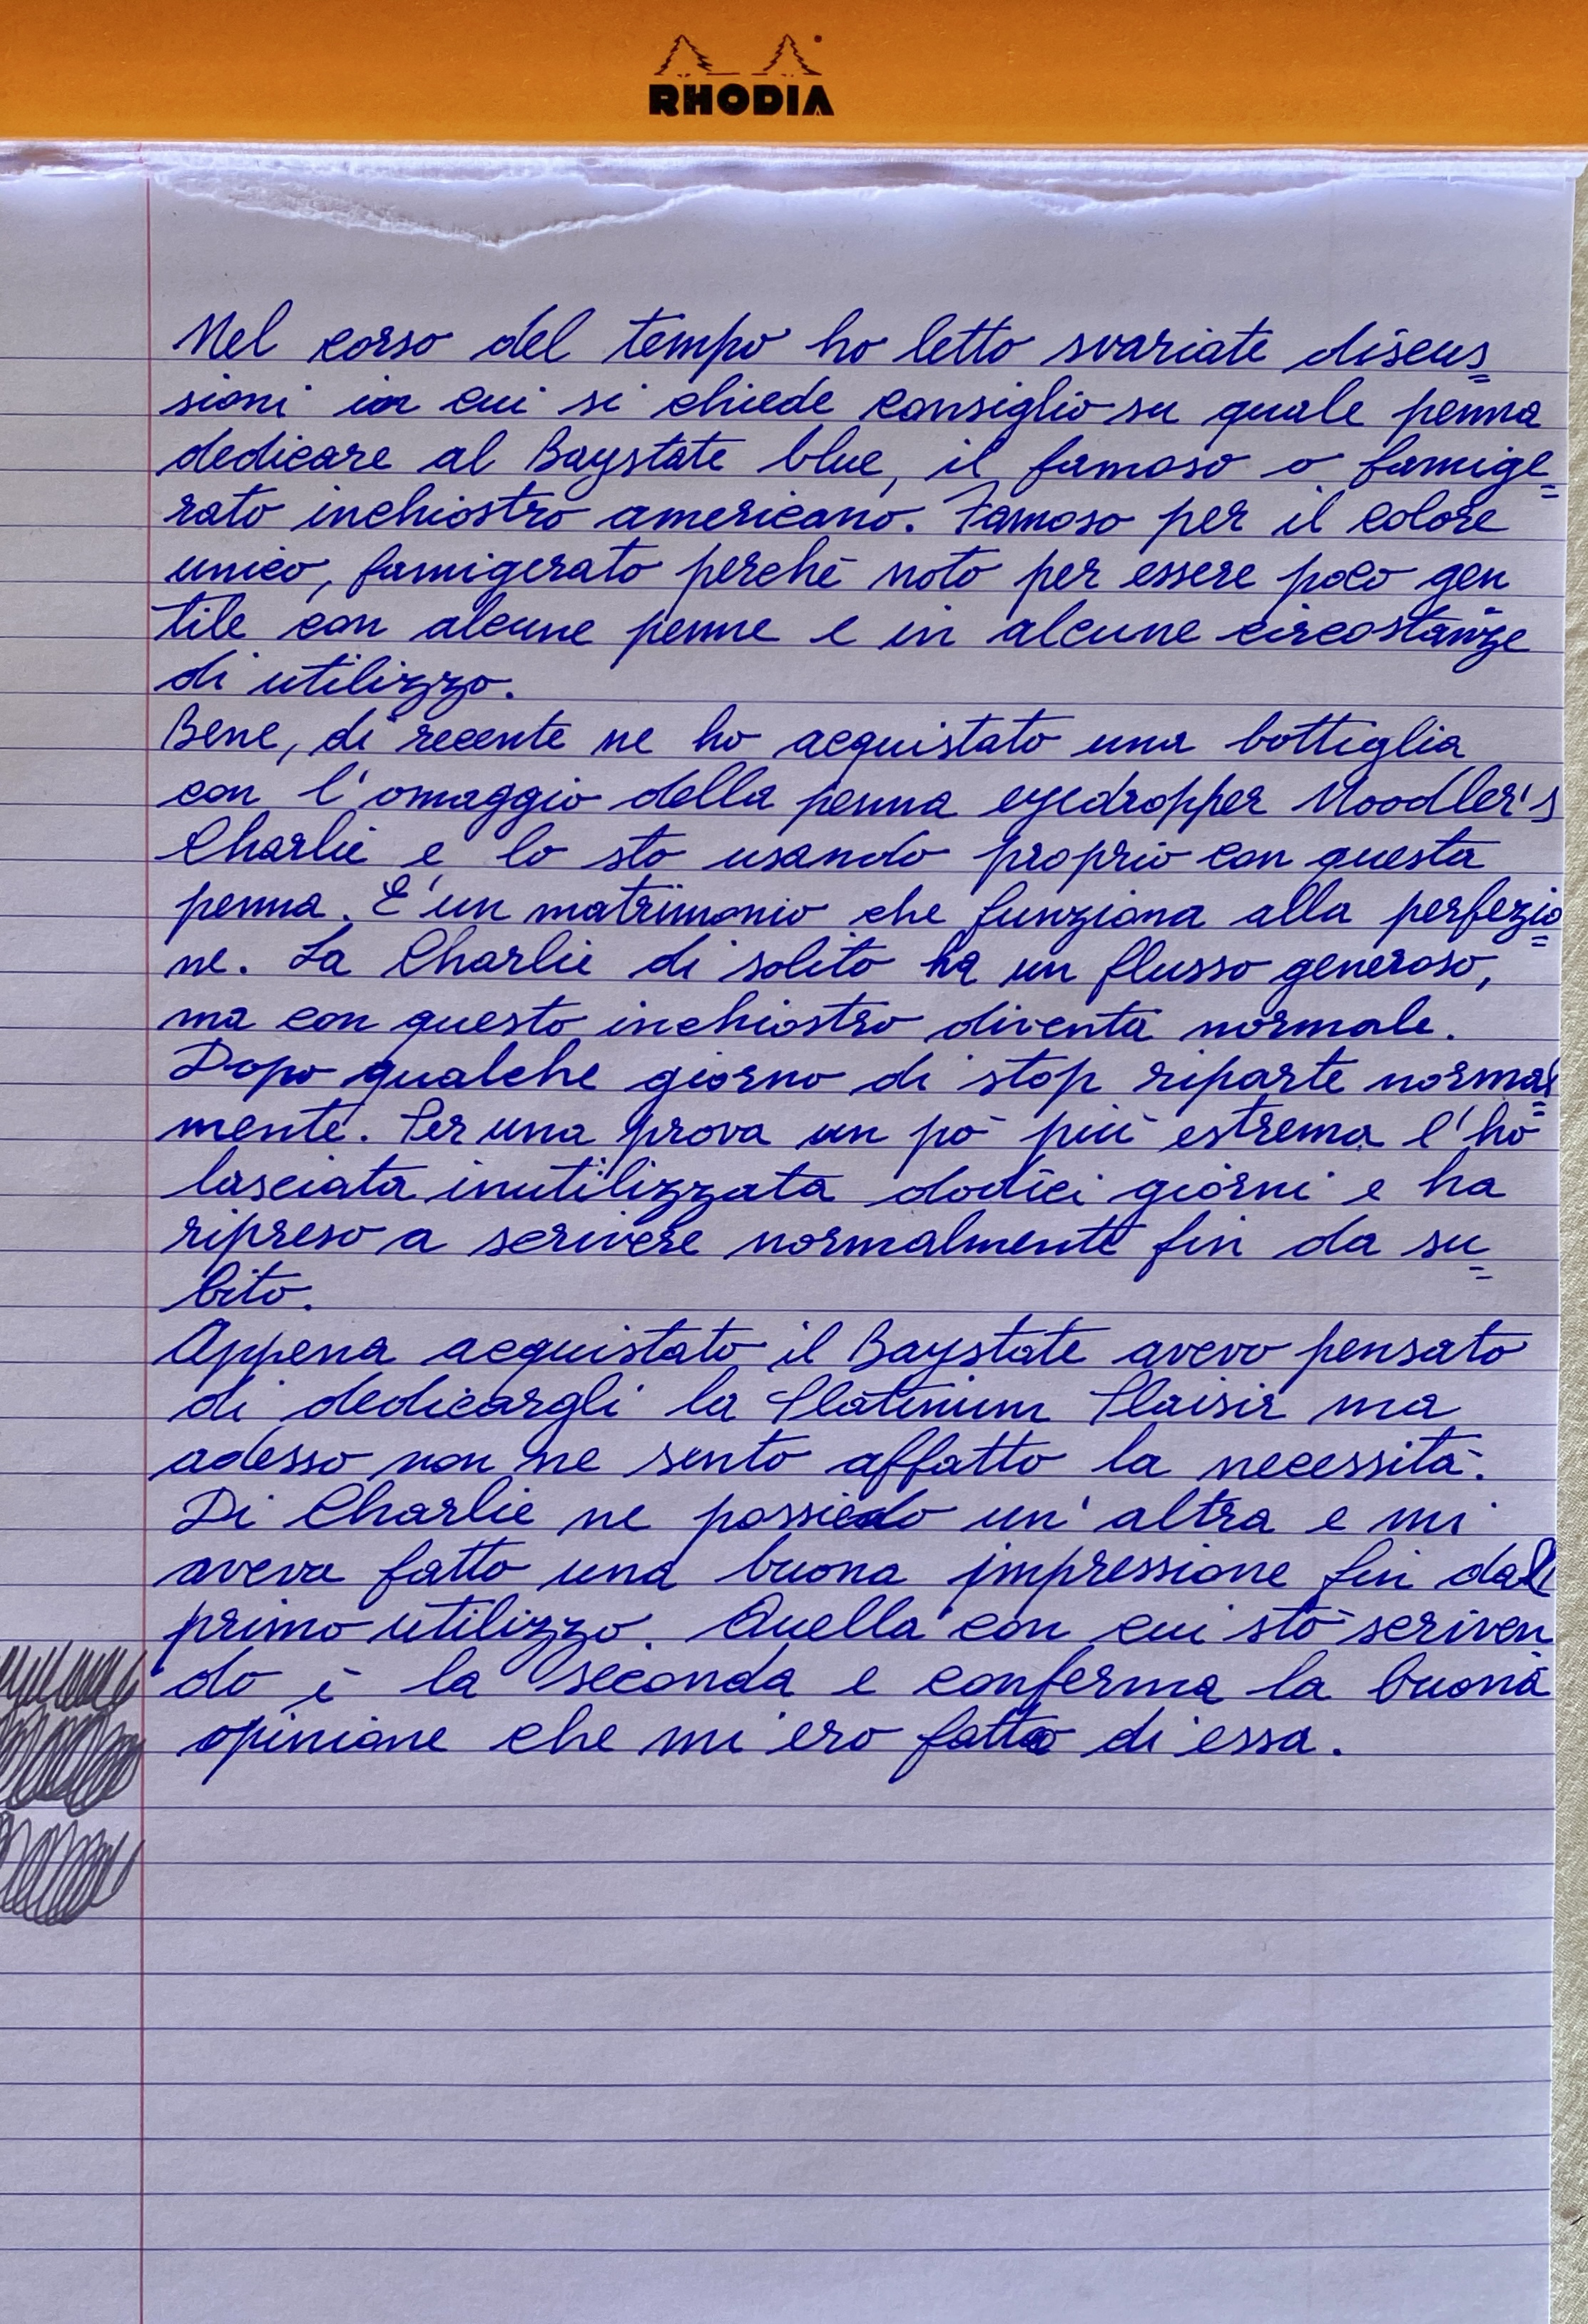 RHODIA
Nel corso del tempo ho letto svariate discus=
sioni in cui si chiede consiglio su quale penna
dedicare al Baystate blue, il famoso o famige=
rato inchiostro americano. Famoso per il colore
unico, famigerato perchè noto per essere poco gen
tile con alcune penne e in alcune circostanze
di utilizzo.
Bene, di recente ne ho acquistato una bottiglia
con l'omaggio della penna eyedropper Noodler's
Charlie e lo sto usando proprio con questa
penna. E' un matrimonio che funziona alla perfezio=
ne. La Charlie di solito ha un flusso generoso,
ma con questo inchiostro diventa normale.
Dopo qualche giorno di stop riparte normal=
mente. Per una prova un pò più estrema l'ho
lasciata inutilizzata dodici giorni e ha
ripreso a scrivere normalmente fin da su=
bito.
Appena acquistato il Baystate avevo pensato
di dedicargli la Platinum Plaisir ma
adesso non ne sento affatto la necessità.
Di Charlie ne possiedo un'altra e mi
aveva fatto una buona impressione fin dal
primo utilizzo. Quella con cui stò scriven
do è la seconda e conferma la buona
opinione che mi ero fatto di essa.